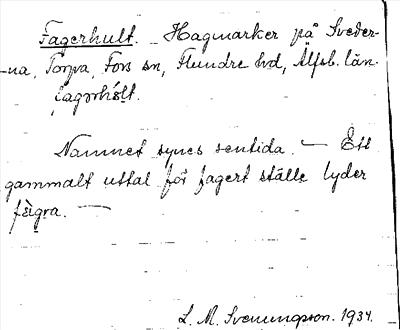 Fagerhult. Hagmarker på Sveder-
na, Torpa, Fors sn, Flundre hd, Älfsb. län.
fagərhúlt.
Namnet synes sentida. — Ett
gammalt uttal för fagert ställe lyder
fèigra. —
L. M. Svenungsson. 1934.